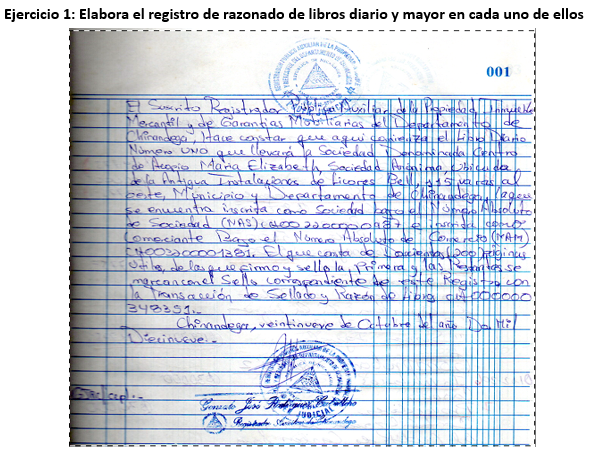 Ejercicio 1: Elabora el registro de razonado de libros diario y mayor en cada uno de ellos
001
El Suscrito Registrador Público Auxiliar de la Propiedad Inmueble
Mercantil y de Garantías Mobiliarias del Departamento de
Chinandega, Hace constar que aquí comienza el Libro Diario
Número UNO que llevará la Sociedad Denominada Centro
de Acopio María Elizabeth, Sociedad Anónima, Ubicada
de la Antigua Instalaciones de Licores Bell, 315 varas al
oeste, Municipio y Departamento de Chinandega,
se encuentra inscrita como Sociedad bajo el Número Absoluto
de Sociedad (NAS) como
Comerciante Bajo el Número Absoluto de Comercio (NAM)
El que consta de Doscientas (200) páginas
útiles, de las que firmo y sello la Primera y las Restantes se
marcan con el Sello correspondiente de este Registro con
la Transacción de Sellado y Razón de Libro
348391.-
Chinandega, veintinueve de Octubre del año Dos Mil
Diecinueve.-
Gonzalo José Rodríguez
JUDICIAL
Registrador Auxiliar de Chinandega